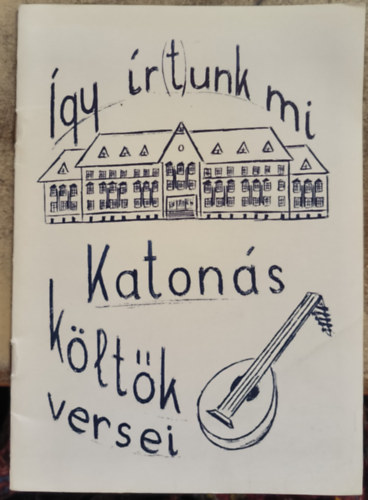 Így ír(t)unk mi
Katonás
költők
versei